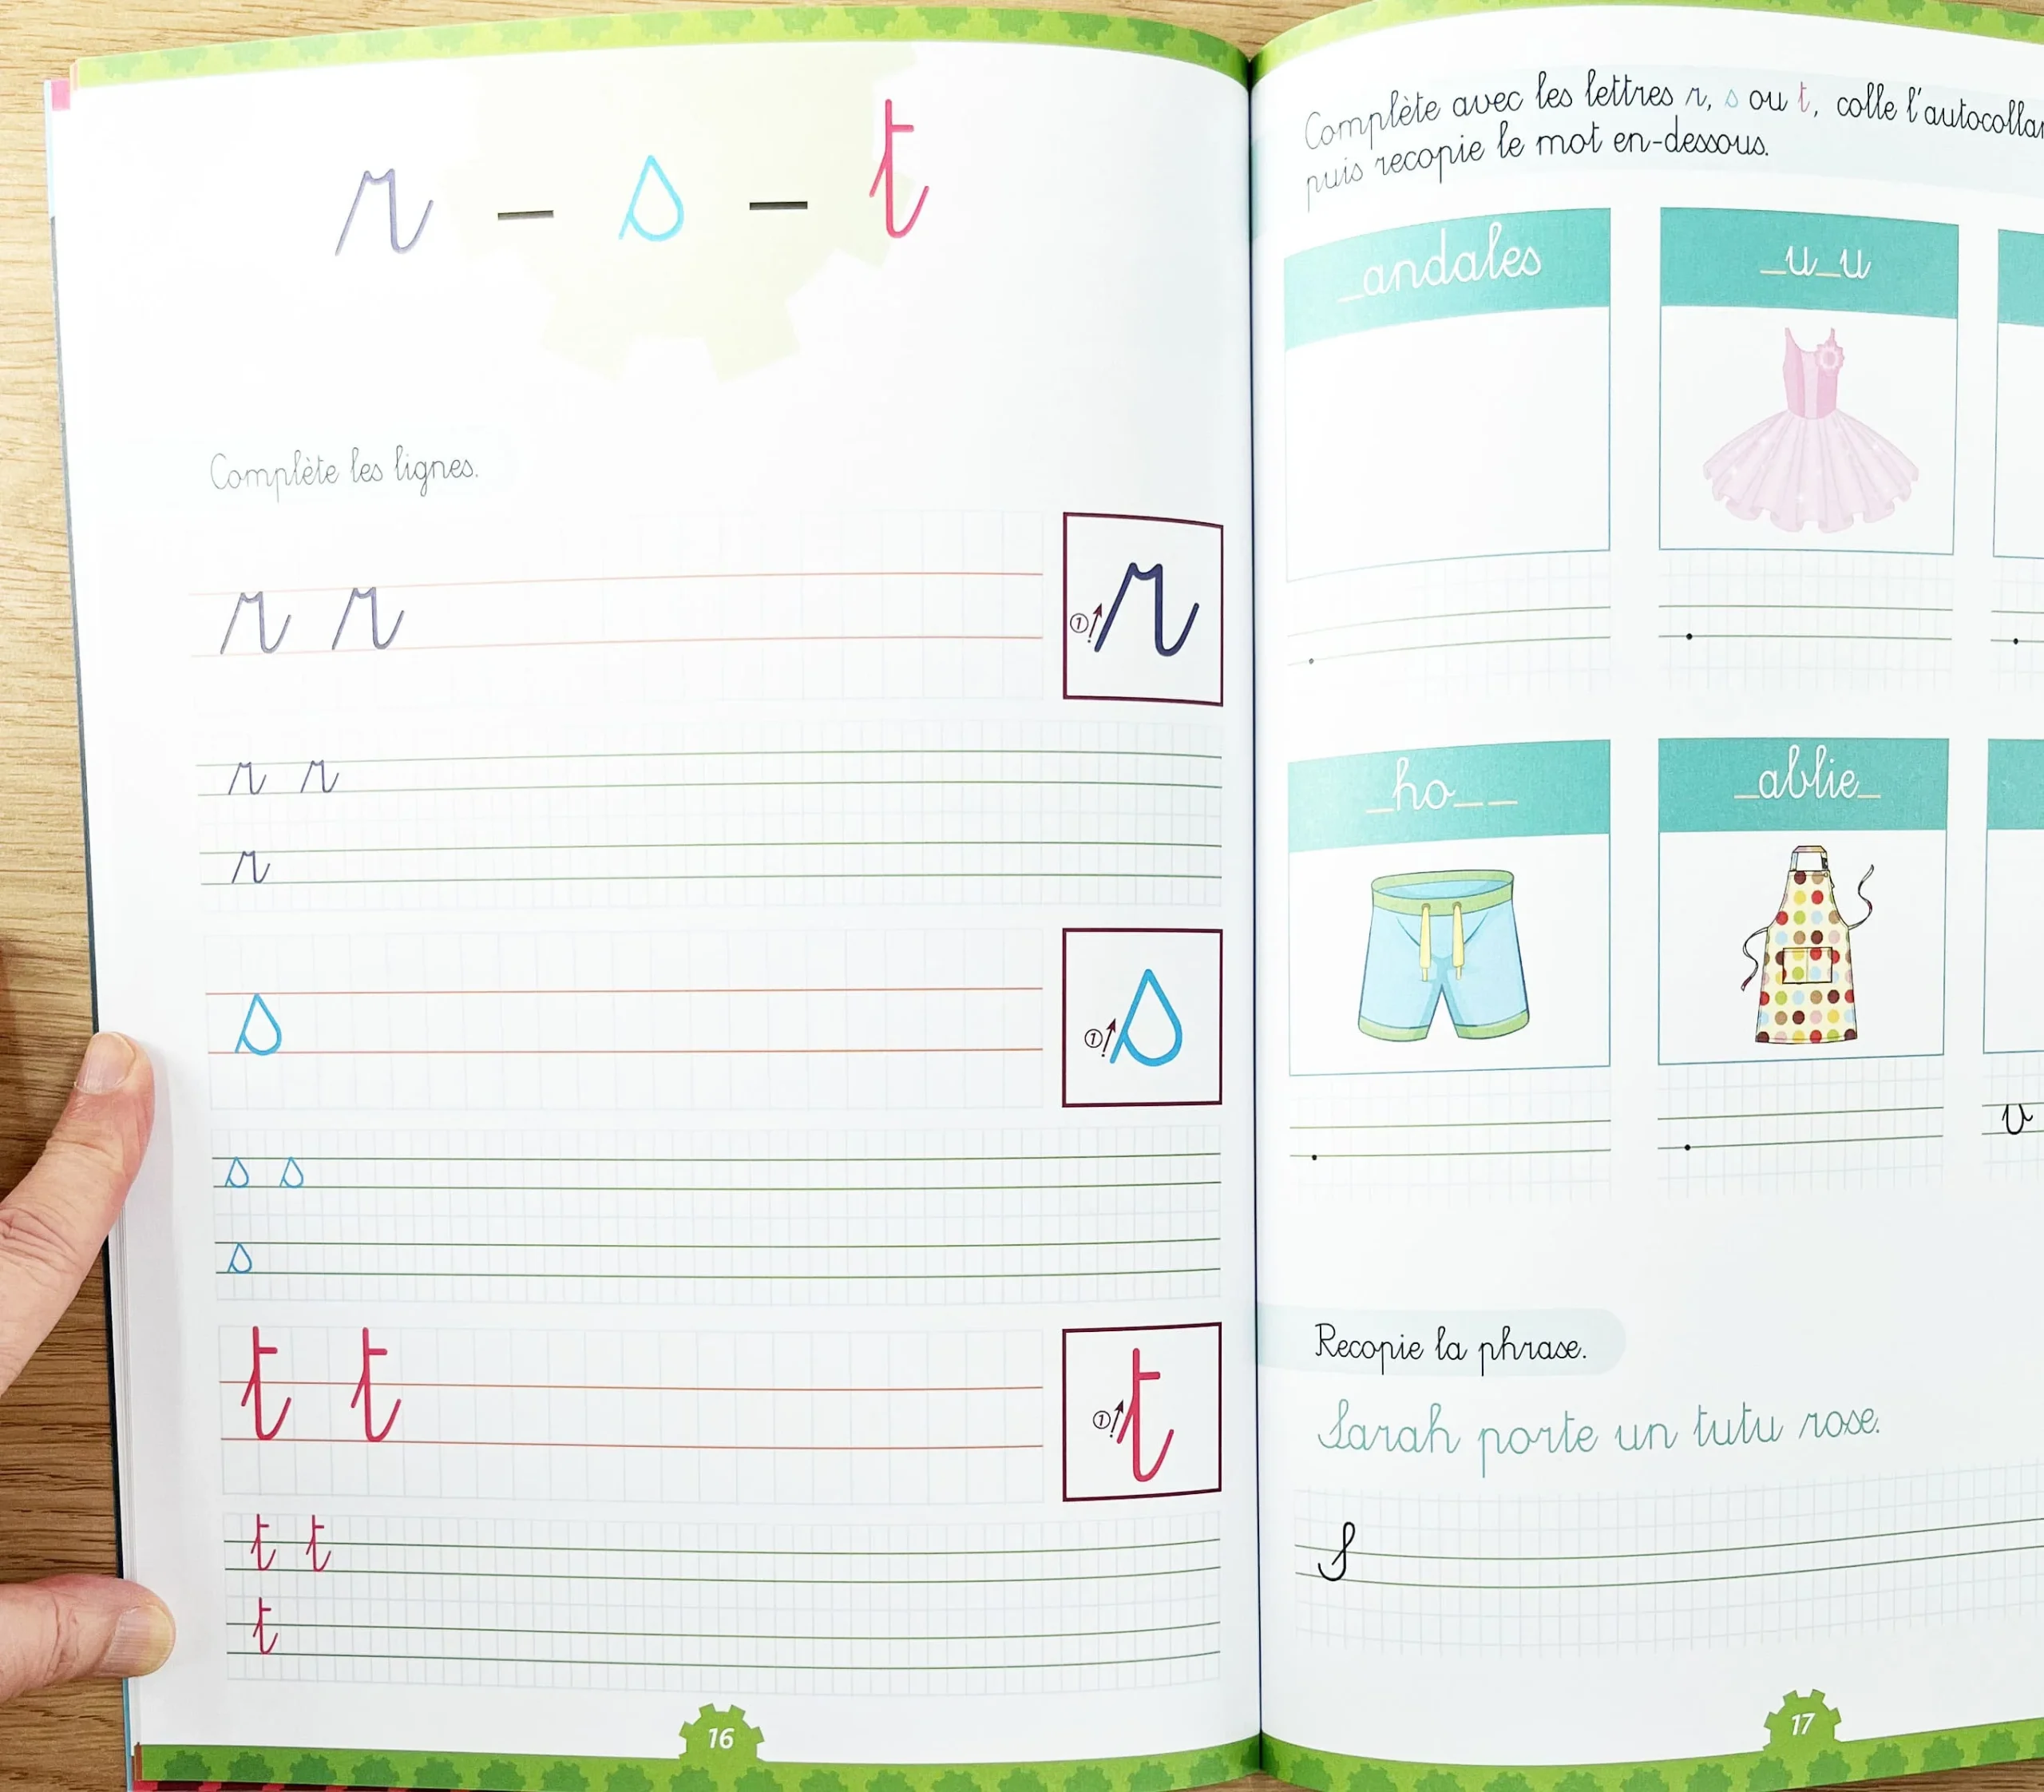 r – s – t
Complète les lignes.
r r
① r
r r
r
s
① s
s s
s
t t
① t
t t
t
16
Complète avec les lettres r, s ou t, colle l'autocollan
puis recopie le mot en-dessous.
_andales
_u_u
_ho__
_ablie_
v
Recopie la phrase.
Sarah porte un tutu rose.
S
17